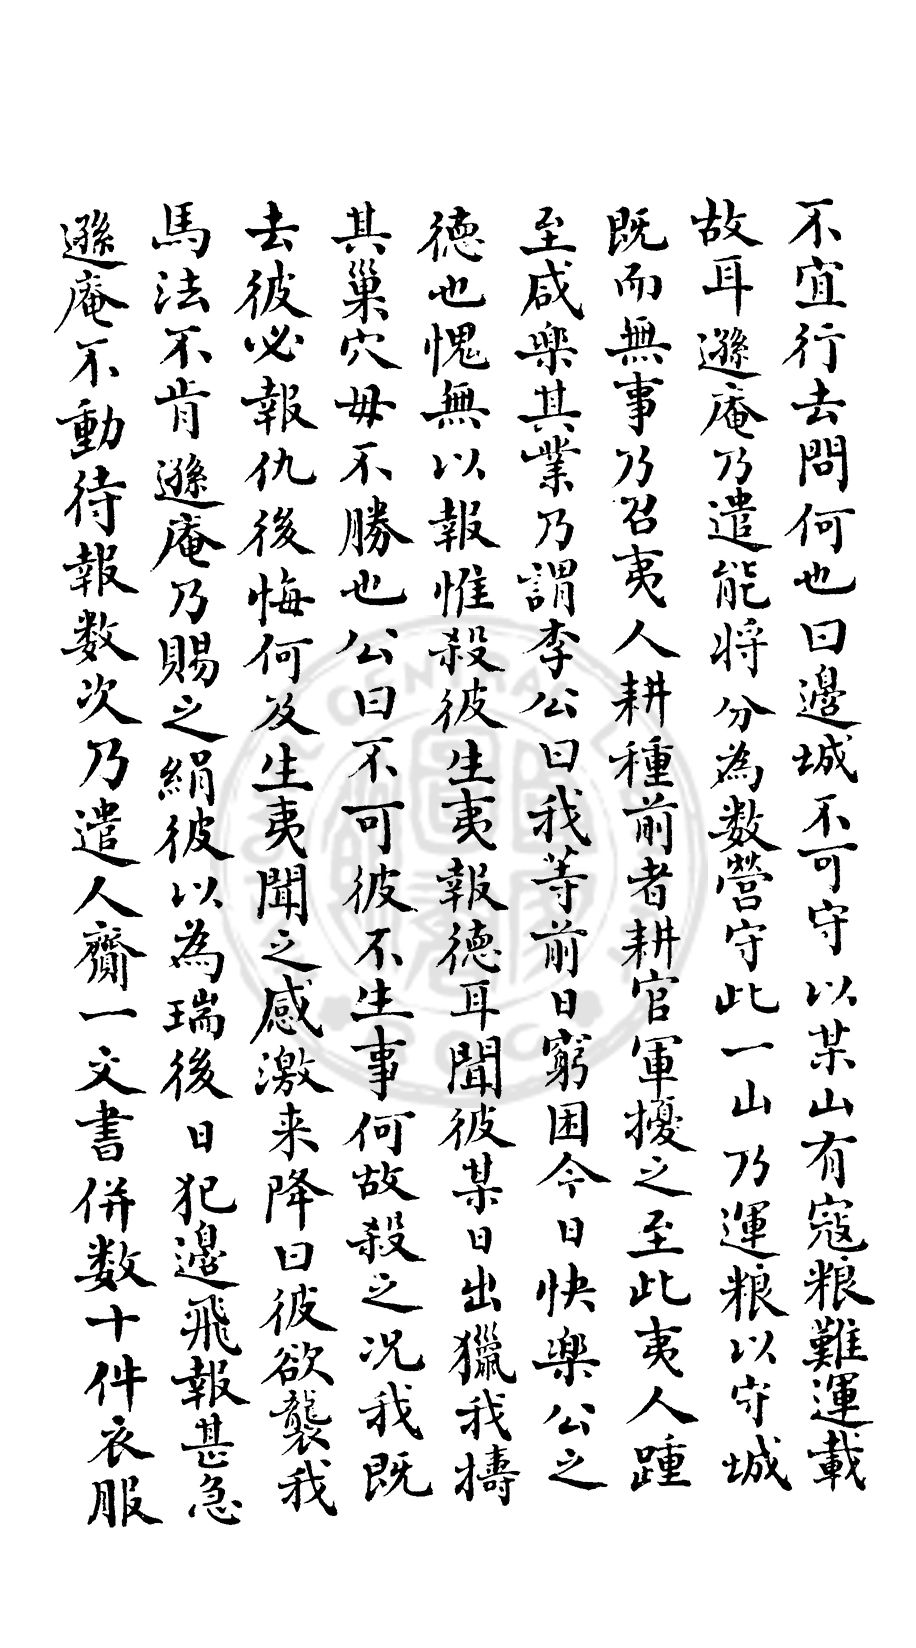 不宜行去問何也曰邊城不可守以某山有寇粮難運載
故耳遯庵乃遣能将分為数營守此一山乃運粮以守城
既而無事乃召夷人耕種前者耕官軍擾之至此夷人踵
至咸樂其業乃謂李公曰我等前日窮困今日快樂公之
德也愧無以報惟殺彼生夷報德耳聞彼某日出獵我擣
其巢穴毋不勝也公曰不可彼不生事何故殺之况我既
去彼必報仇後悔何及生夷聞之感激来降曰彼欲襲我
馬法不肯遯庵乃賜之絹彼以為瑞後日犯邊飛報甚急
遯庵不動待報数次乃遣人齎一文書併数十件衣服